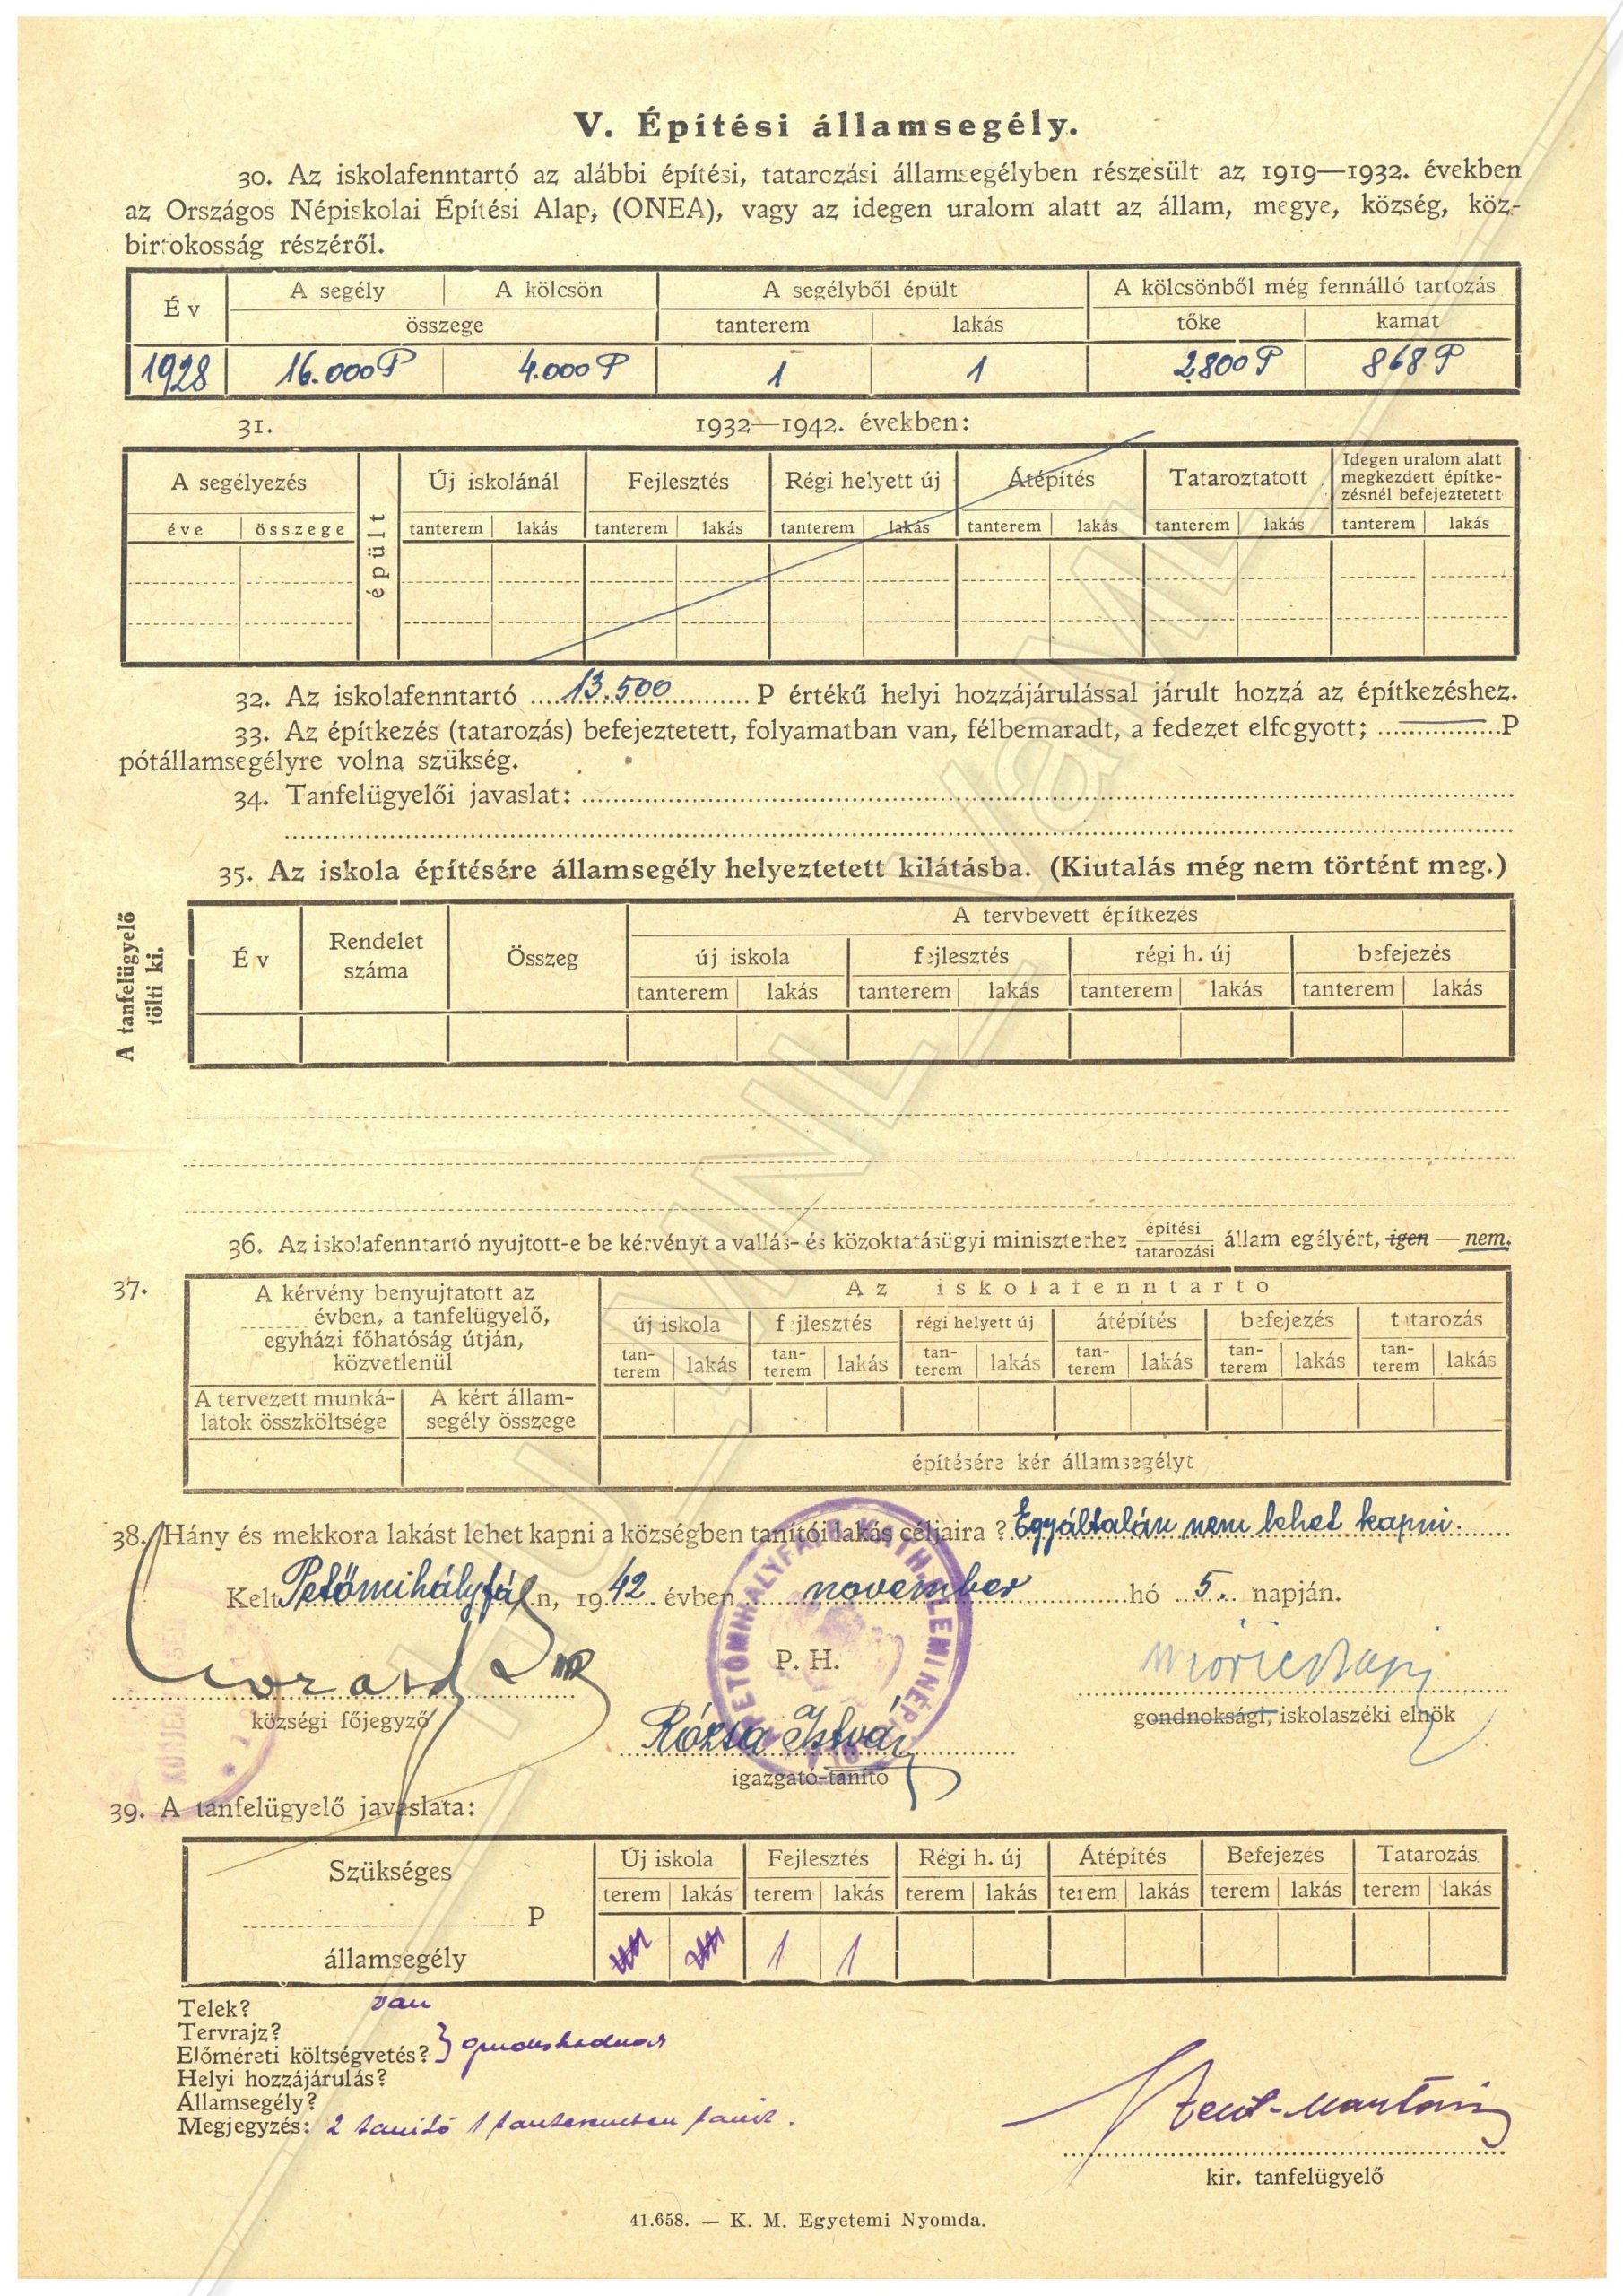 V. Építési államsegély.
30. Az iskolafenntartó az alábbi építési, tatarczási államsegélyben részesült az 1919—1932. években
az Országos Népiskolai Építési Alap, (ONEA), vagy az idegen uralom alatt az állam, megye, község, köz-
birtokosság részéről.
Év A segély A kölcsön A segélyből épült A kölcsönből még fennálló tartozás
összege tanterem lakás tőke kamat
1928 16.000 P 4.000 P 1 1 2.800 P 868 P
31. 1932—1942. években:
A segélyezés épült Új iskolánál Fejlesztés Régi helyett új Átépítés Tataroztatott Idegen uralom alatt
megkezdett építke-
zésnél befejeztetett
éve összege tanterem lakás tanterem lakás tanterem lakás tanterem lakás tanterem lakás tanterem lakás
32. Az iskolafenntartó 13.500 P értékű helyi hozzájárulással járult hozzá az építkezéshez.
33. Az építkezés (tatarozás) befejeztetett, folyamatban van, félbemaradt, a fedezet elfogyott; P
pótállamsegélyre volna szükség.
34. Tanfelügyelői javaslat:
35. Az iskola építésére államsegély helyeztetett kilátásba. (Kiutalás még nem történt meg.)
A tanfelügyelő
tölti ki.
Év Rendelet száma Összeg A tervbevett építkezés
új iskola fejlesztés régi h. új befejezés
tanterem lakás tanterem lakás tanterem lakás tanterem lakás
36. Az iskolafenntartó nyujtott-e be kérvényt a vallás- és közoktatásügyi miniszterhez építési tatarozási állam egélyért, igen — nem.
37. A kérvény benyujtatott az
évben, a tanfelügyelő,
egyházi főhatóság útján,
közvetlenül
Az iskolafenntartó
új iskola fejlesztés régi helyett új átépítés befejezés tatarozás
tan-
terem lakás tan-
terem lakás tan-
terem lakás tan-
terem lakás tan-
terem lakás tan-
terem lakás
A tervezett munká-
látok összköltsége
A kért állam-
segély összege
építésére kér államsegélyt
38. Hány és mekkora lakást lehet kapni a községben tanítói lakás céljaira? Egyáltalán nem lehet kapni.
Kelt Petőmihályfán, 1942. évben november hó 5. napján.
P. H.
PETŐMIHÁLYFAI R. KATH. ELEMI NÉP
községi főjegyző
gondnoksági, iskolaszéki elnök
Rózsa István
igazgató-tanító
39. A tanfelügyelő javaslata:
Szükséges
P
államsegély
Új iskola Fejlesztés Régi h. új Átépítés Befejezés Tatarozás
terem lakás terem lakás terem lakás terem lakás terem lakás terem lakás
1 1
Telek? van
Tervrajz?
Előméreti költségvetés?
Helyi hozzájárulás?
Államsegély?
Megjegyzés: 2 tanító 1 tanteremben tanít.
kir. tanfelügyelő
41.658. — K. M. Egyetemi Nyomda.
HU_MNL_VaML